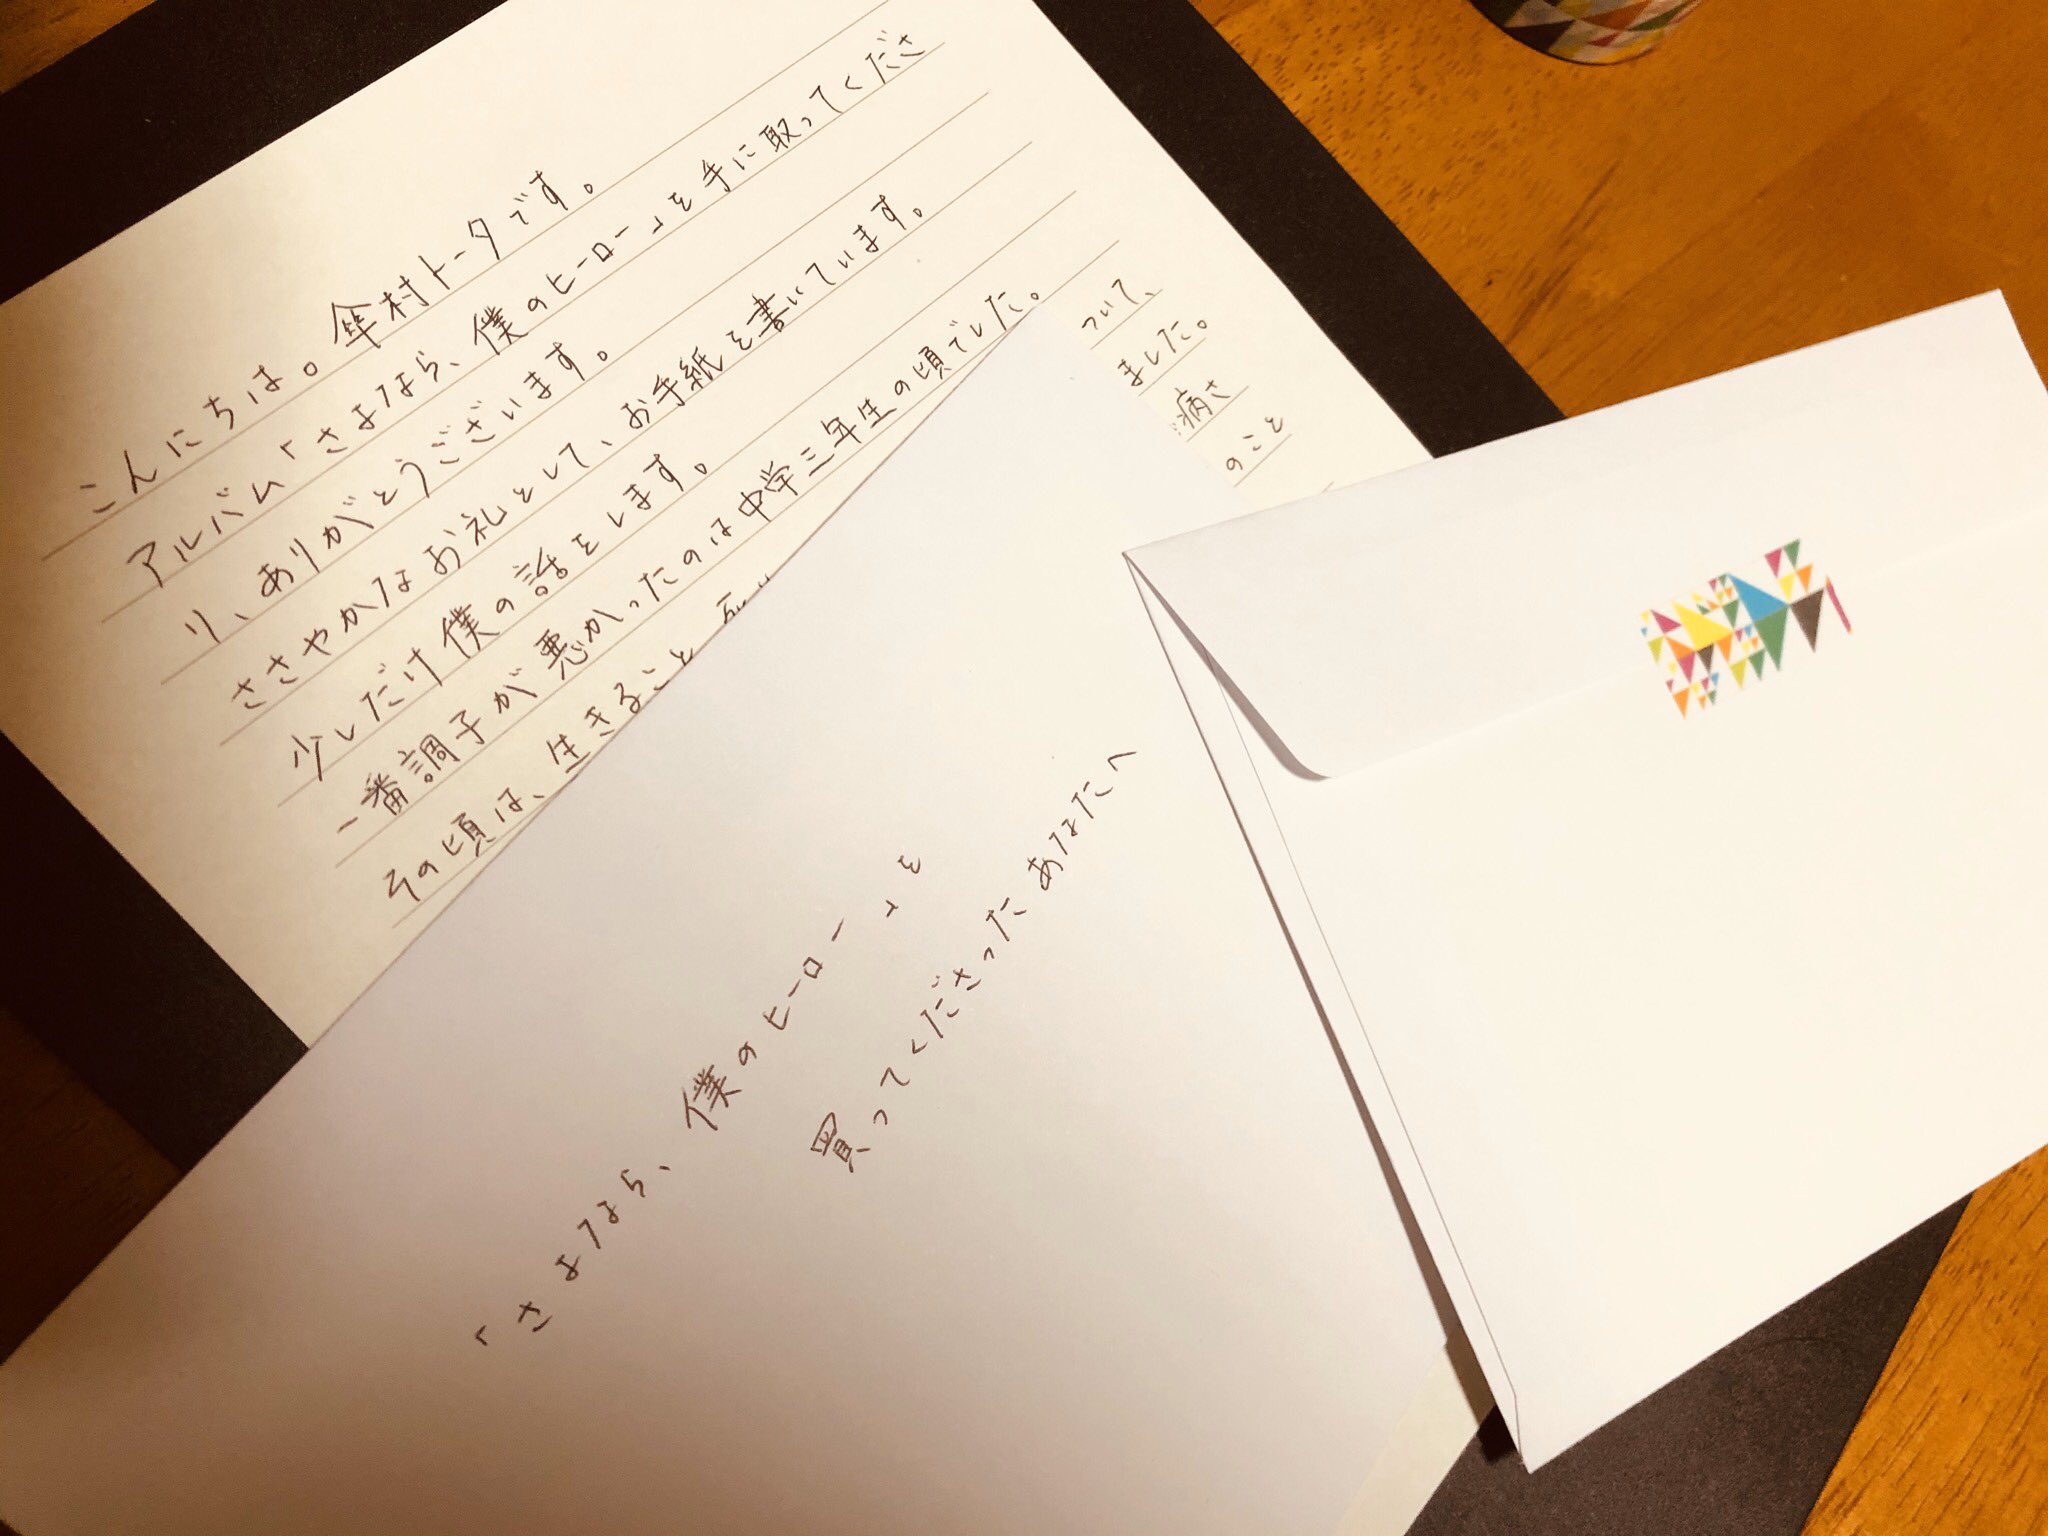 こんにちは。傘村トータです。
アルバム「さよなら、僕のヒーロー」を手に取ってくださ
り、ありがとうございます。
ささやかなお礼として、お手紙を書いています。
少しだけ僕の話をします。
一番調子が悪かったのは中学三年生の頃でした。
その頃は、生きること
ついて、
ました。
病さ
のこと
「さよなら、僕のヒーロー」を
買ってくださったあなたへ